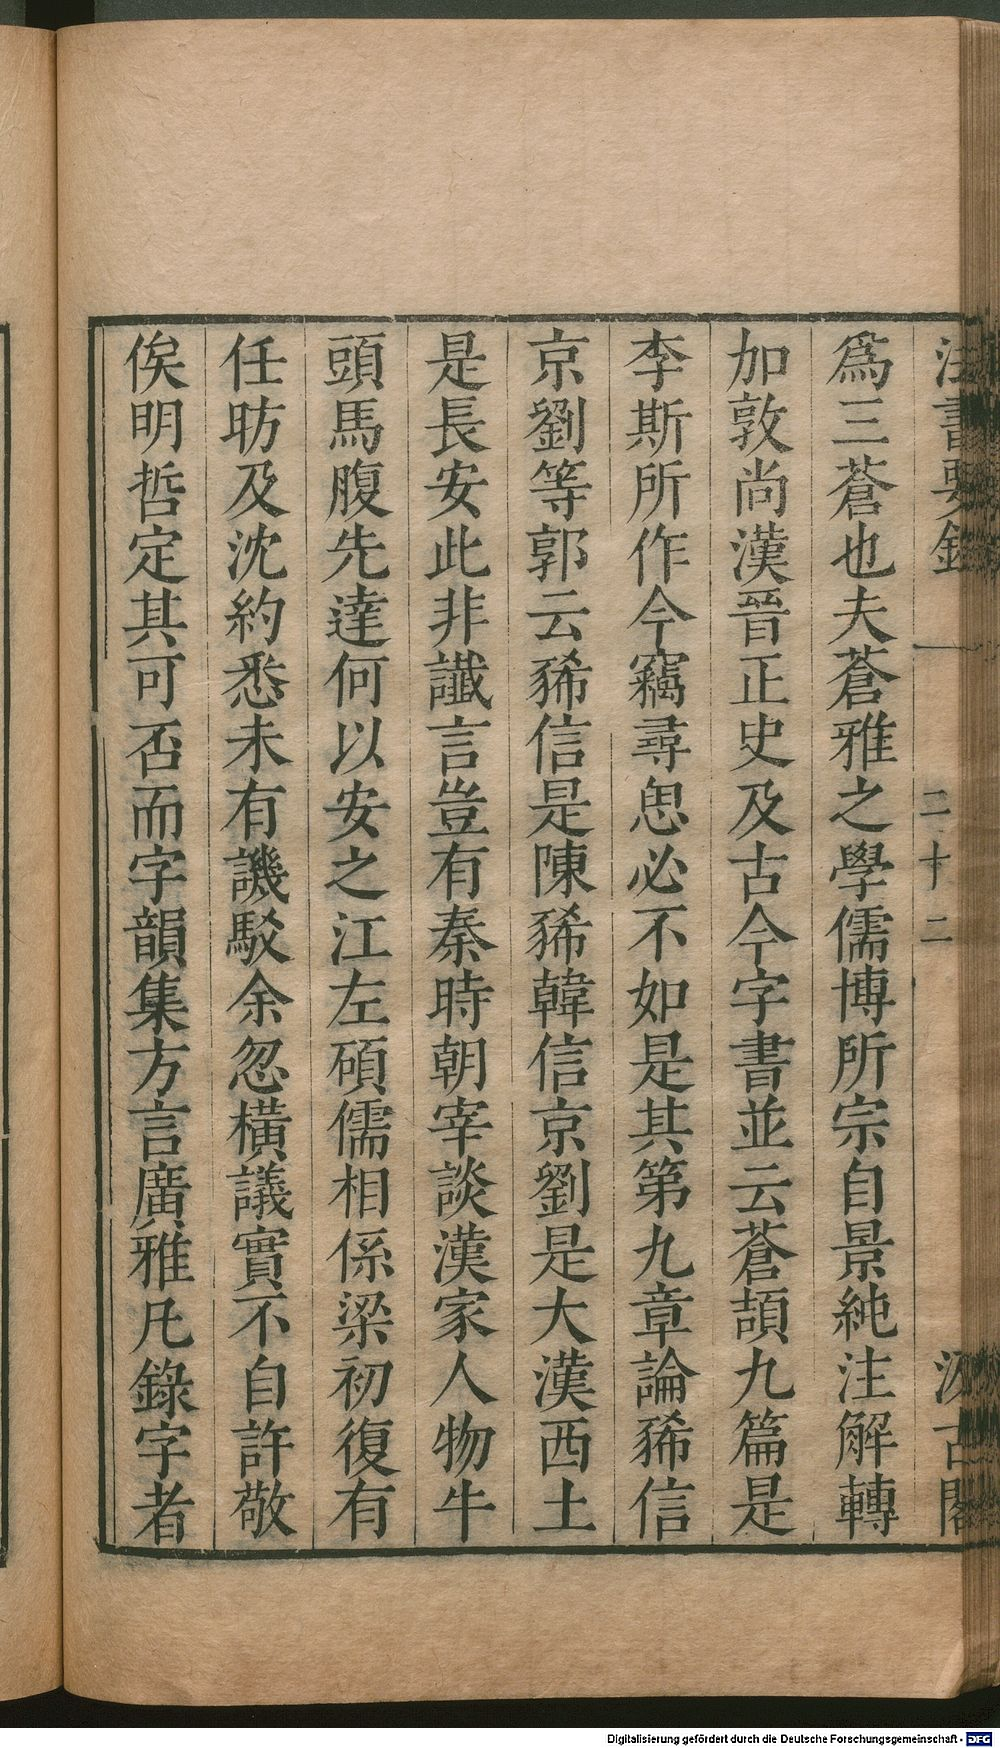 法書要錄 一 二十二 汲古閣
爲三蒼也夫蒼雅之學儒博所宗自景純注解轉
加敦尚漢晉正史及古今字書並云蒼頡九篇是
李斯所作今竊尋思必不如是其第九章論豨信
京劉等郭云豨信是陳豨韓信京劉是大漢西土
是長安此非讖言豈有秦時朝宰談漢家人物牛
頭馬腹先達何以安之江左碩儒相係梁初復有
任昉及沈約悉未有譏駁余忽橫議實不自許敬
俟明哲定其可否而字韻集方言廣雅凡錄字者
Digitalisierung gefördert durch die Deutsche Forschungsgemeinschaft - DFG